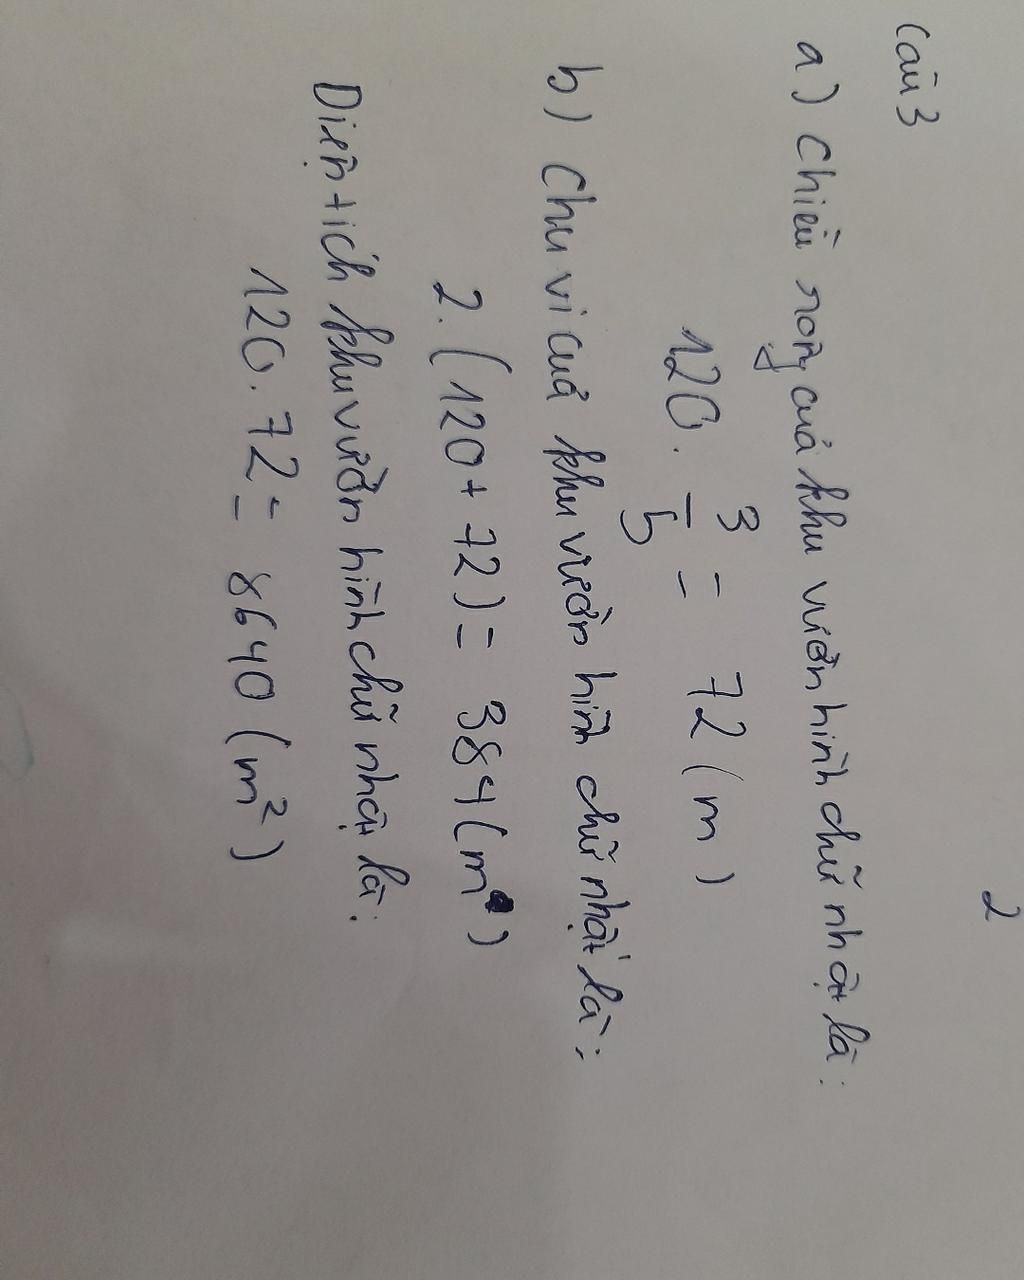 2
Câu 3
a) Chiều rộng của khu vườn hình chữ nhật là:
120. 3/5 = 72 (m)
b) Chu vi của khu vườn hình chữ nhật là:
2. (120 + 72) = 384 (m)
Diện tích khu vườn hình chữ nhật là:
120. 72 = 8640 (m²)